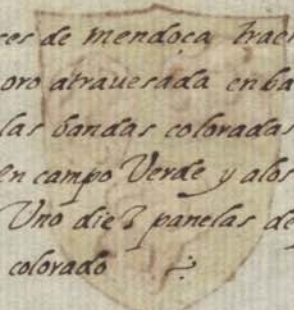 ces de mendoça traen
oro atrauesada en ba
las bandas coloradas
en campo Verde y alos
Uno diez panelas de
colorado